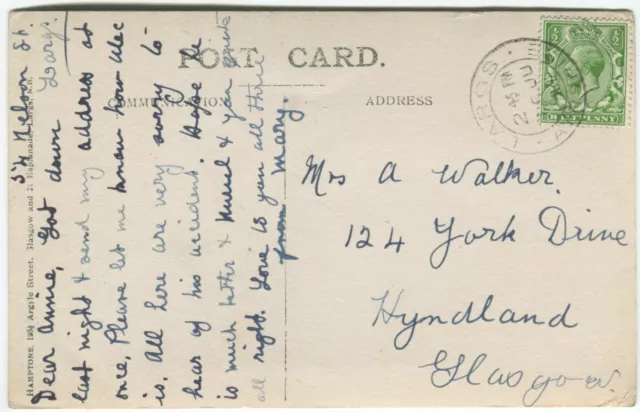 POST CARD.
COMMUNICATION
ADDRESS
HALFPENNY
LARGS
2 45 PM
HAMPTONS, 195½ Argyle Street, Glasgow and 21 Esplanade, Largs, N.B.
54 Nelson St.
Largs.
Dear Annie, Got down
last night & send my address at
once. Please let me know how Alec
is. All here are very sorry to
hear of his accident. Hope he
is much better & Muriel & you quite
all right. Love to you all three
from Mary.
Mrs A Walker.
124 York Drive
Hyndland
Glasgow.